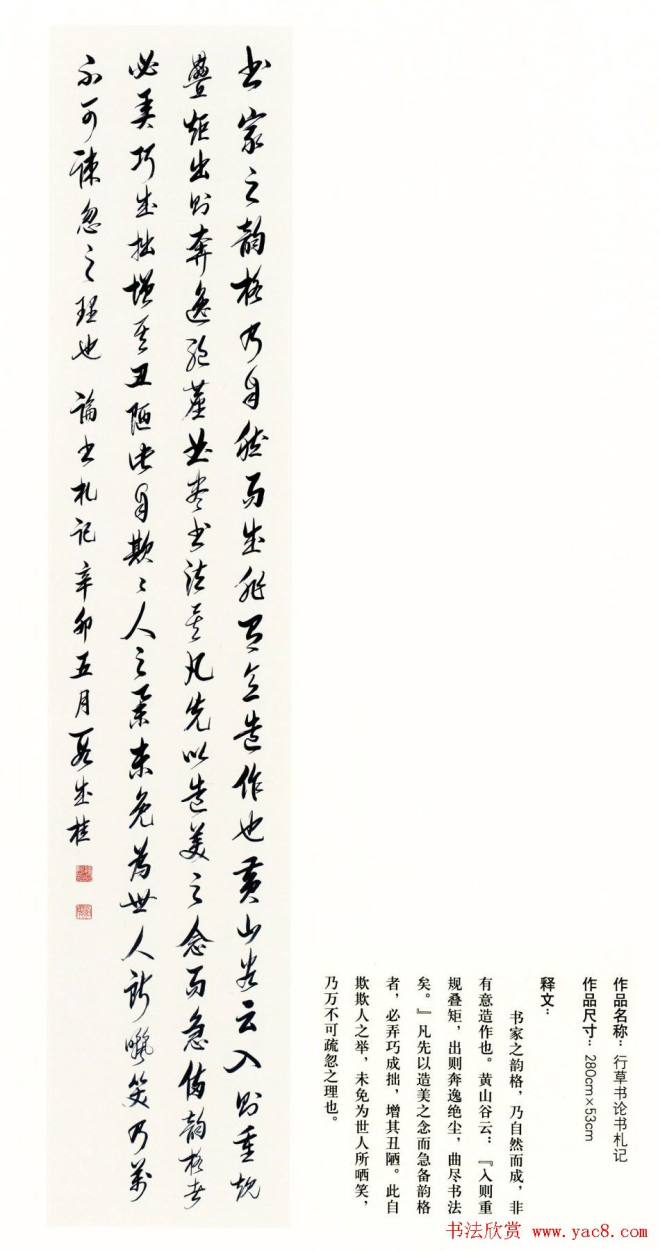 书家之韻格乃自然而成非有意造作也黄山谷云入则重规
疊矩出则奔逸绝塵曲尽书法矣凡先以造美之念而急備韻格者
必弄巧成拙增其丑陋此自欺〻人之举未免为世人所哂笑乃萬
不可疎忽之理也 論书札记 辛卯五月 段成桂
作品名称：行草书论书札记
作品尺寸：280cm×53cm
释文：
书家之韵格，乃自然而成，非
有意造作也。黄山谷云：『入则重
规叠矩，出则奔逸绝尘，曲尽书法
矣。』凡先以造美之念而急备韵格
者，必弄巧成拙，增其丑陋。此自
欺欺人之举，未免为世人所哂笑，
乃万不可疏忽之理也。
书法欣赏 www.yac8.com